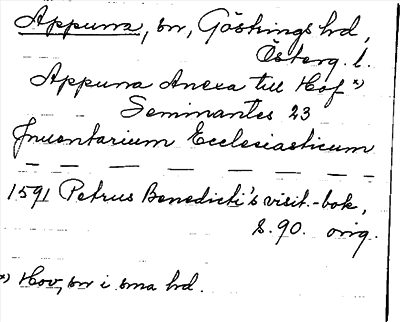 Appuna, sn, Göstrings hd,
Österg. l.
Appuna Anexa till Hof x)
Seminantes 23
Inuentarium Ecclesiasticum
— — — — — — — — —
1591 Petrus Benedicti's visit.-bok,
s. 90. orig.
x) Hov, sn i sma hd.